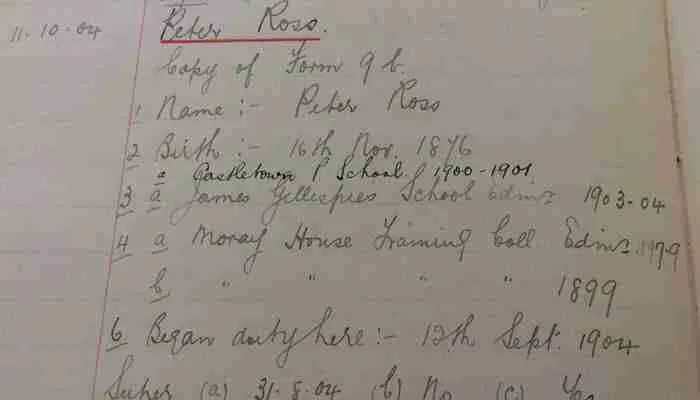 11.10.04
Peter Ross.
Copy of Form 9 b.
1 Name :- Peter Ross
2 Birth :- 16th Nov. 1876
a Castletown P School 1900-1901
3 a James Gillespies School Edinr 1903-04
4 a Moray House Training Coll Edinr
b " " " " 1899
6 Began duty here :- 12th Sept. 1904
Super (a) 31.8.04 (b) No (c) Yes